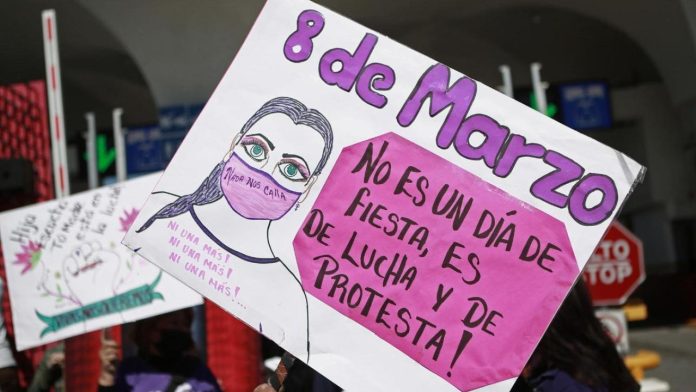 8 de Marzo
NO ES UN DÍA DE
FIESTA, ES
DE LUCHA Y DE
PROTESTA!
NADA NOS CALLA
NI UNA MAS!
NI UNA MÁS!
NI UNA MÁS!...
Hija
TU MADRE
está en
la lucha
ALTO
STOP